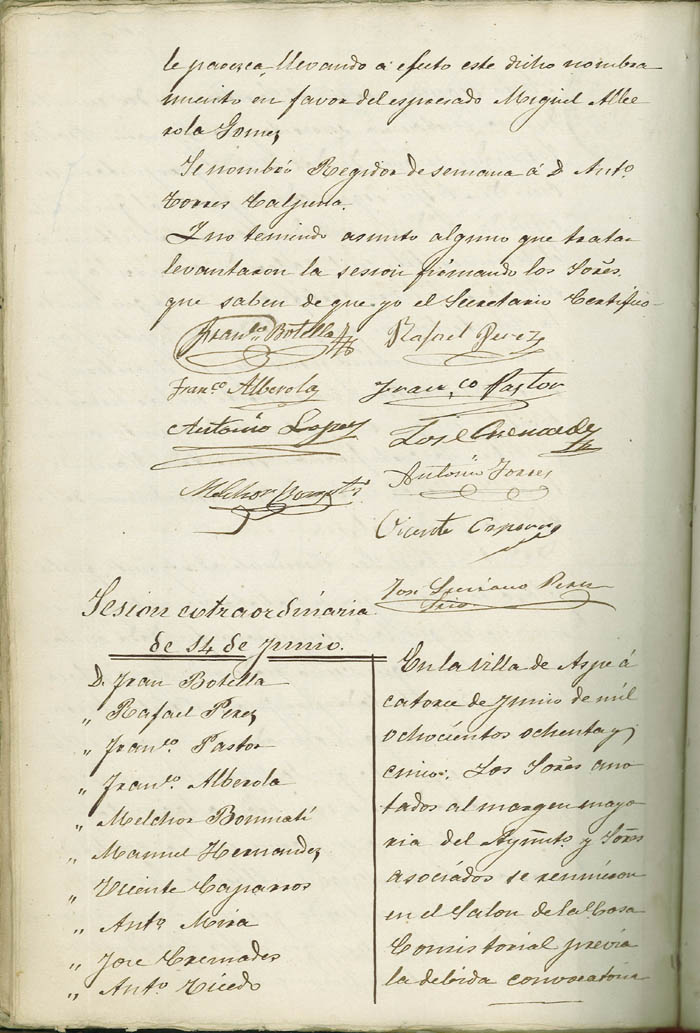 le parezca, llevando á efecto este dicho nombra
miento en favor del espresado Miguel Albe
rola Gomez
Se nombró Regidor de semana á D. Antº
Torres Calpena.
Y no teniendo asunto alguno que tratar
levantaron la sesion firmando los Sorẽs
que saben de que yo el Secretario Certifico-
Franco Botella
Rafael Perez
Franco Alberola
Franco Pastor
Antonio Lopez
José Cremades
Antonio Torres
Melchor Bonmati
Vicente Caparros
José Perez
Srio
Sesion extraordinaria
de 14 de Junio.
D. Fran Botella
„ Rafael Perez
„ Franco Pastor
„ Franco Alberola
„ Melchor Bonmatí
„ Manuel Hernandez
„ Vicente Caparros
„ Antº Mira
„ Jose Cremades
„ Antº Vicedo
En la villa de Aspe á
catorce de Junio de mil
ochocientos ochenta y
cinco. Los Sorẽs ano
tados al margen mayo
ria del Ayũnto y Sorẽs
asociados se reunieron
en el Salon de la Casa
Consistorial previa
la debida convocatoria